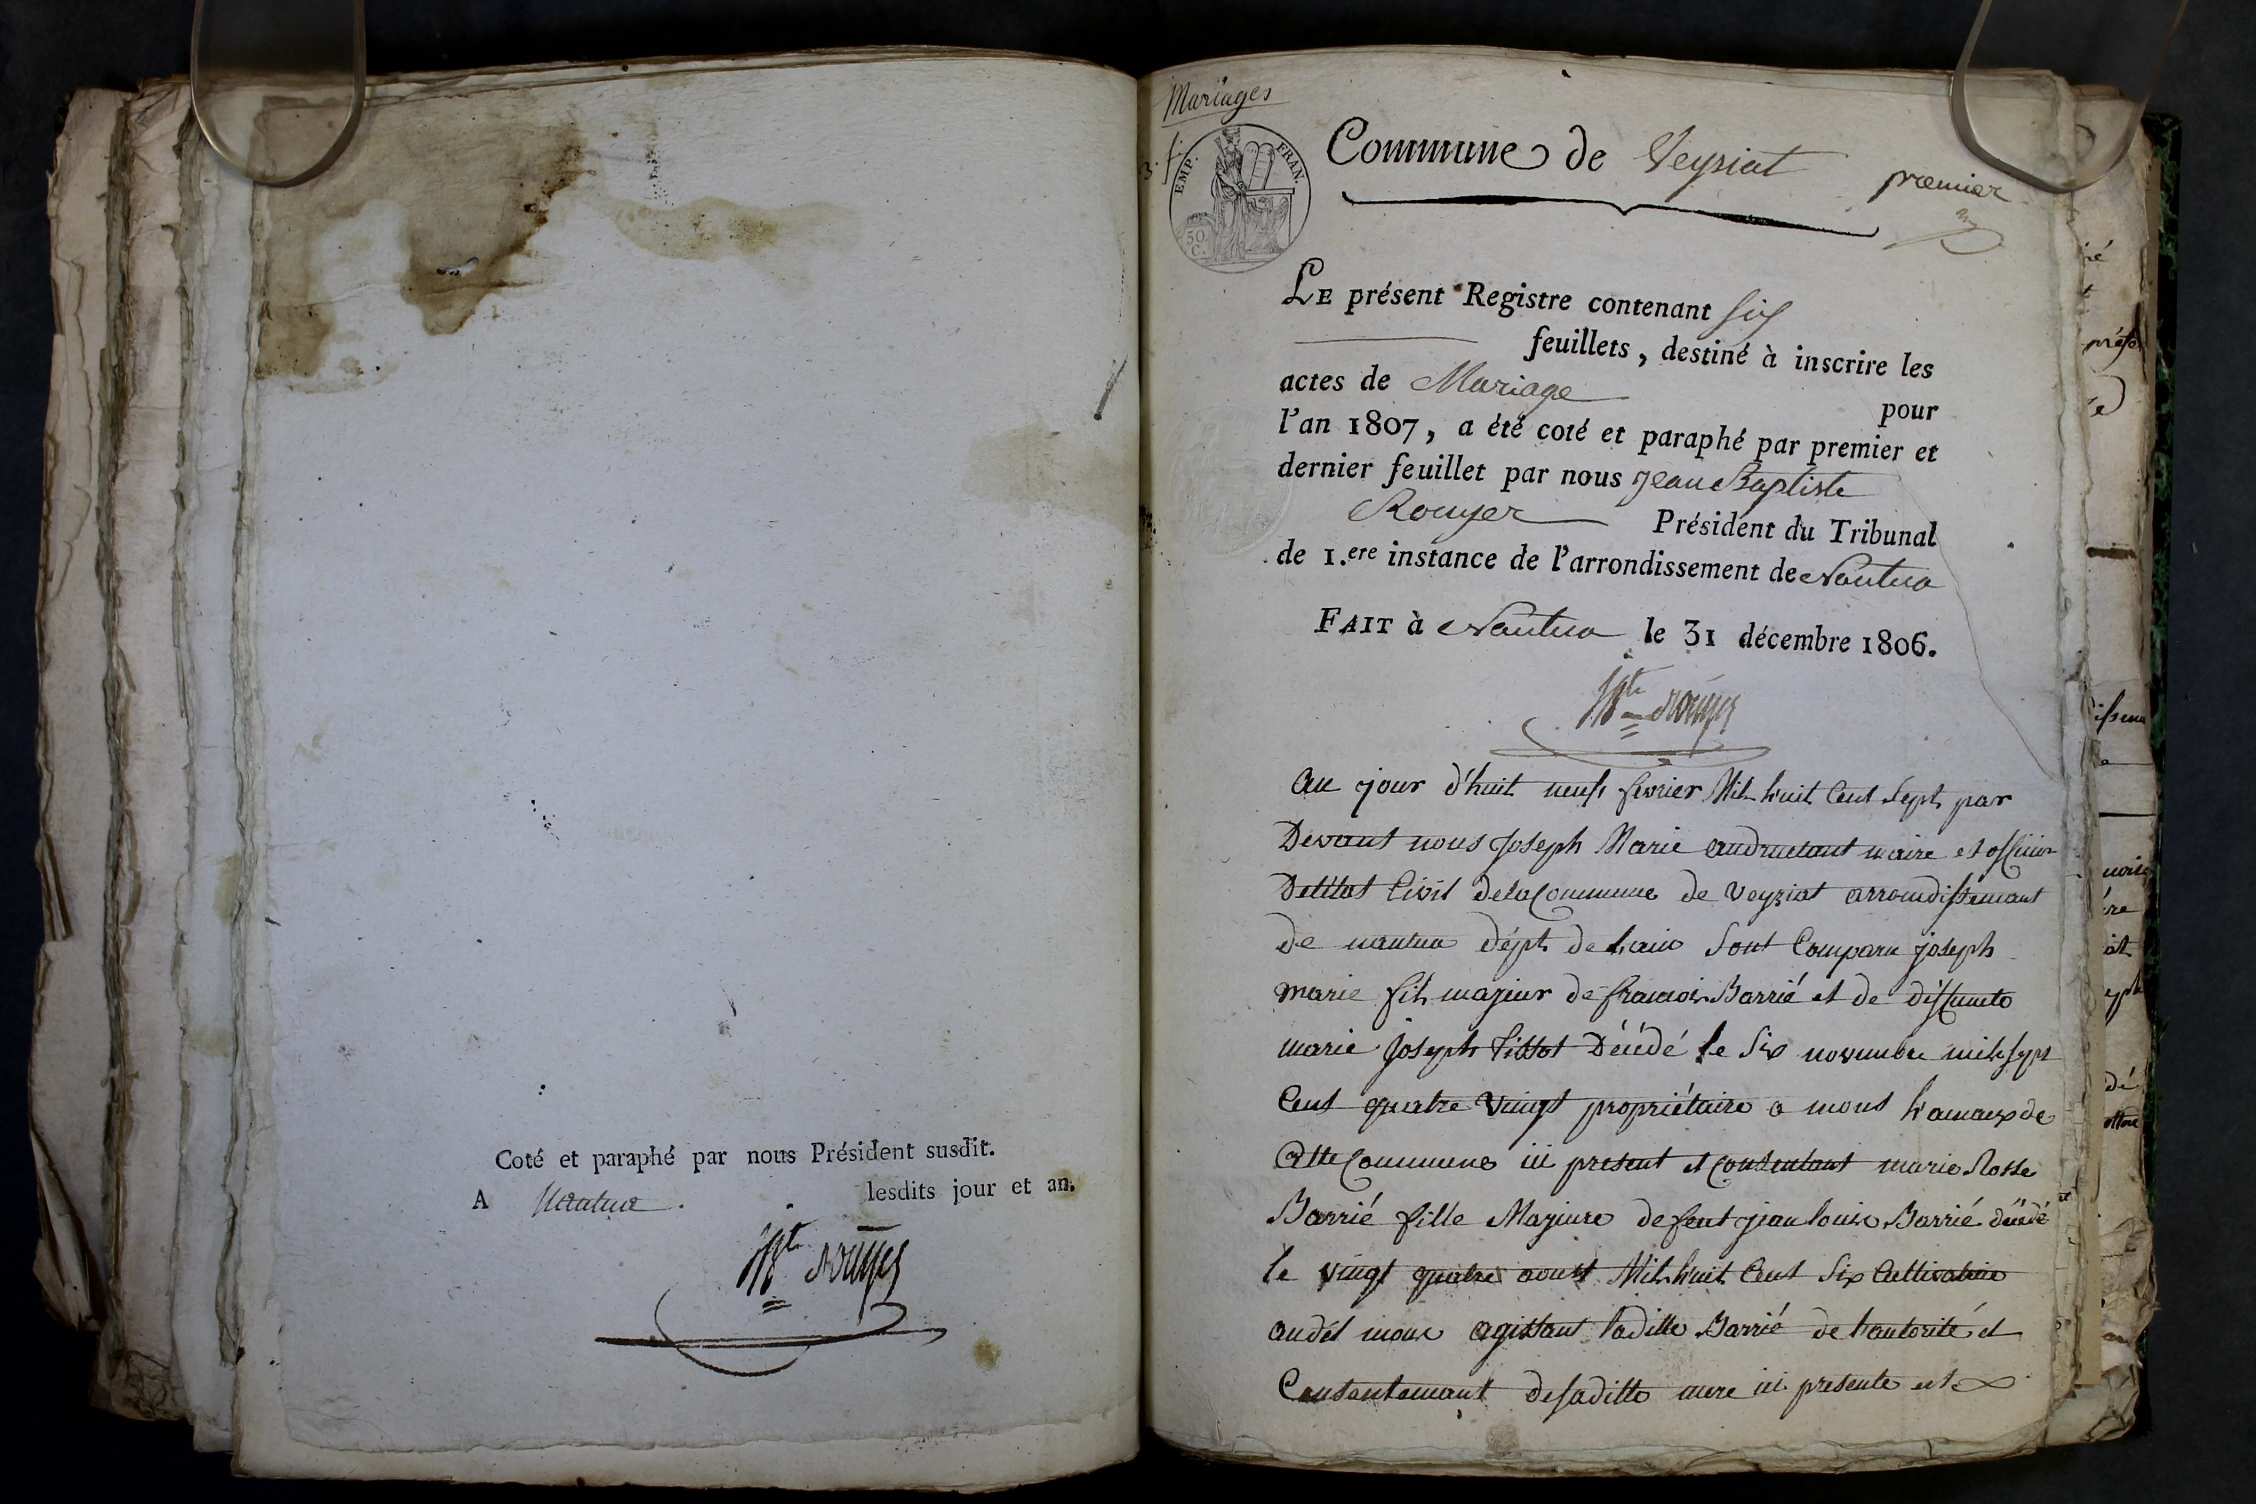 Coté et paraphé par nous Président susdit.
A Nantua lesdits jour et an.
Jbte rouyer
Mariages
3. f.
EMP. FRAN.
50 C.
Commune de Veyziat
premier
LE présent Registre contenant six
feuillets, destiné à inscrire les
actes de Mariage pour
l'an 1807, a été coté et paraphé par premier et
dernier feuillet par nous Jean Baptiste
Rouyer Président du Tribunal
de 1.ere instance de l'arrondissement de Nantua
FAIT à Nantua le 31 décembre 1806.
Jbte rouyer
au jour d'huit neuf fevrier Mil huit Cent Sept par
Devant nous Joseph Marie andruetant maire et officier
Deletat Civil de la Commune de Veyziat arrondissemant
de nantua dépt de lain Sont Comparu joseph
marie fils majeur de francois Barrié et de deffuncte
marie Joseph tissot Décédé le Six novembre mil sept
Cent quatre Vingt propriétaire a mons hameaux de
Cette Commune ici present et Consentant marie Rosse
Barrié fille Majeure de feut jean louis Barrié décédé
le vingt quatre aoust Mil huit Cent Six Cultivateur
audét mons agissant laditte Barrié de lautorité et
Consentemant de saditte mere ici presente et